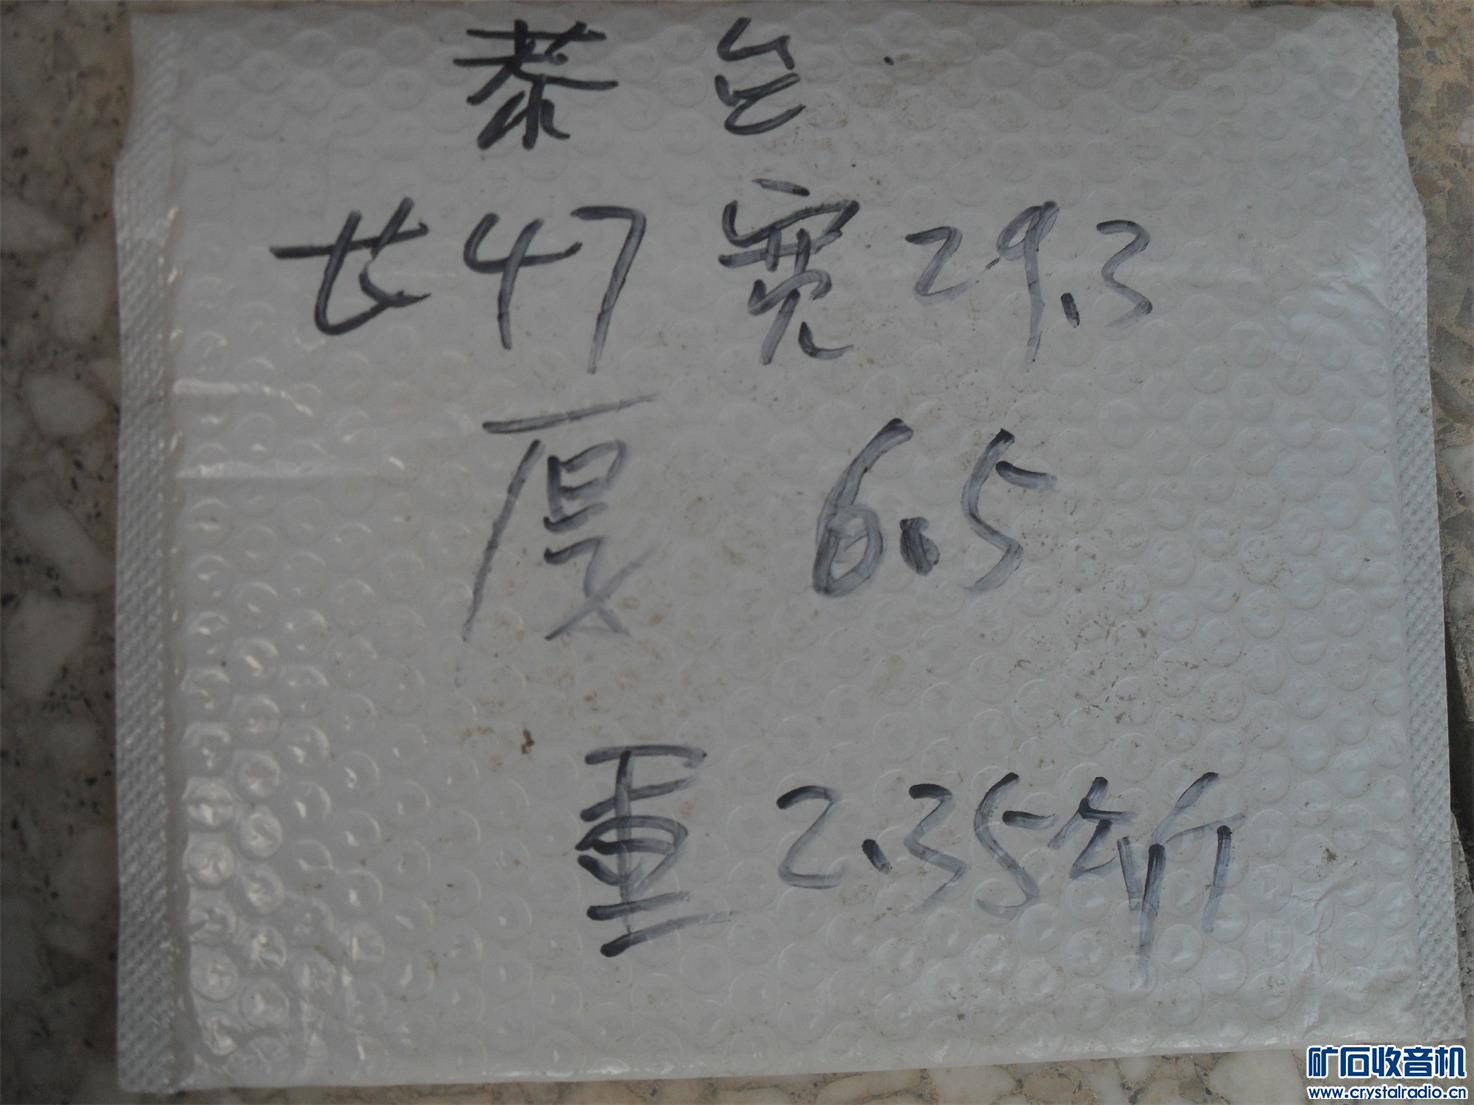 茶台
长47宽29.3
厚 6.5
重2.35斤
矿石收音机
www.crystalradio.cn